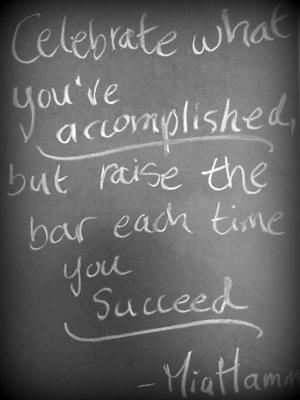 Celebrate what
you've
accomplished,
but raise the
bar each time
you
Succeed
- Mia Hamm